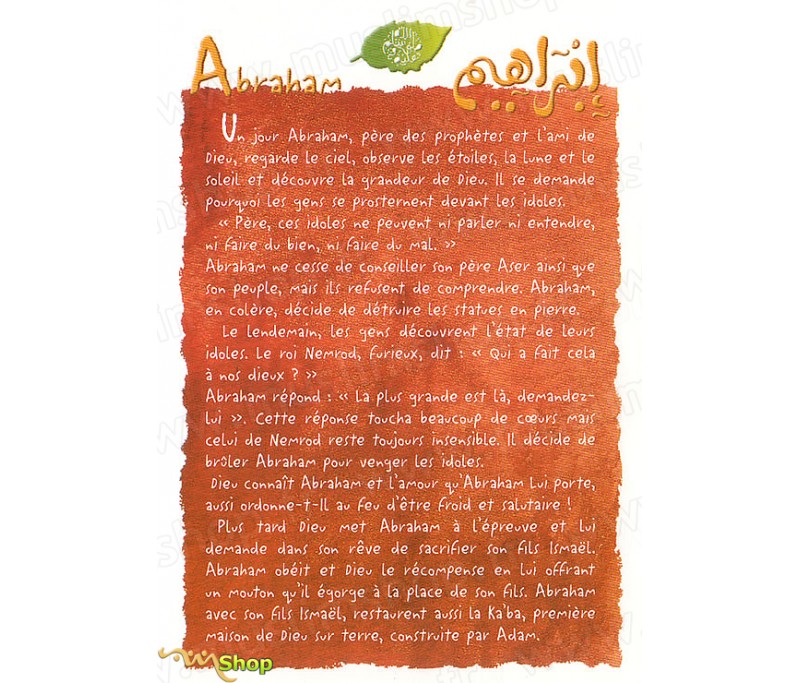 Abraham
إبراهيم
Un jour Abraham, père des prophètes et l'ami de
Dieu, regarde le ciel, observe les étoiles, la lune et le
soleil et découvre la grandeur de Dieu. Il se demande
pourquoi les gens se prosternent devant les idoles.
« Père, ces idoles ne peuvent ni parler ni entendre,
ni faire du bien, ni faire du mal. »
Abraham ne cesse de conseiller son père Aser ainsi que
son peuple, mais ils refusent de comprendre. Abraham,
en colère, décide de détruire les statues en pierre.
Le lendemain, les gens découvrent l'état de leurs
idoles. Le roi Nemrod, furieux, dit : « Qui a fait cela
à nos dieux ? »
Abraham répond : « La plus grande est là, demandez-
lui ». Cette réponse toucha beaucoup de cœurs mais
celui de Nemrod reste toujours insensible. Il décide de
brûler Abraham pour venger les idoles.
Dieu connaît Abraham et l'amour qu'Abraham Lui porte,
aussi ordonne-t-Il au feu d'être froid et salutaire !
Plus tard Dieu met Abraham à l'épreuve et lui
demande dans son rêve de sacrifier son fils Ismaël.
Abraham obéit et Dieu le récompense en lui offrant
un mouton qu'il égorge à la place de son fils. Abraham
avec son fils Ismaël, restaurent aussi la Ka'ba, première
maison de Dieu sur terre, construite par Adam.
Shop